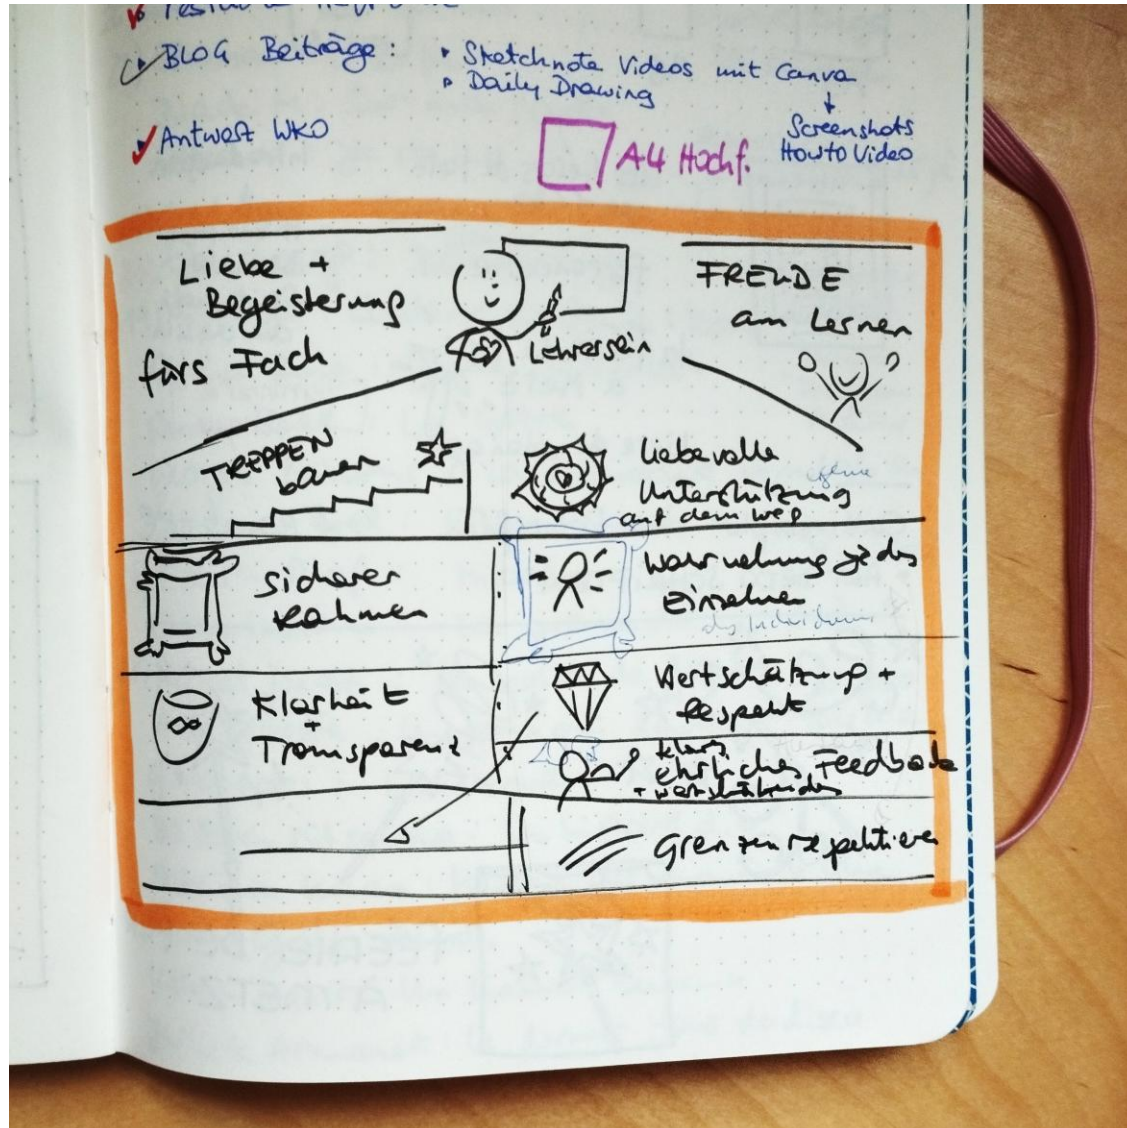 BLOG Beiträge:
Sketchnote Videos mit Canva
Daily Drawing
Screenshots
Howto Video
Antwort WKO
A4 Hochf.
Liebe +
Begeisterung
fürs Fach
Lehrersein
FREUDE
am Lernen
TREPPEN
bauen
liebevolle
Unterstützung
auf dem Weg
sicherer
Rahmen
Wahrnehmung jedes
Einzelnen
des Individuums
Klarheit
+
Transparenz
Wertschätzung +
Respekt
klares
ehrliches Feedback
+ wertschätzendes
Grenzen respektieren